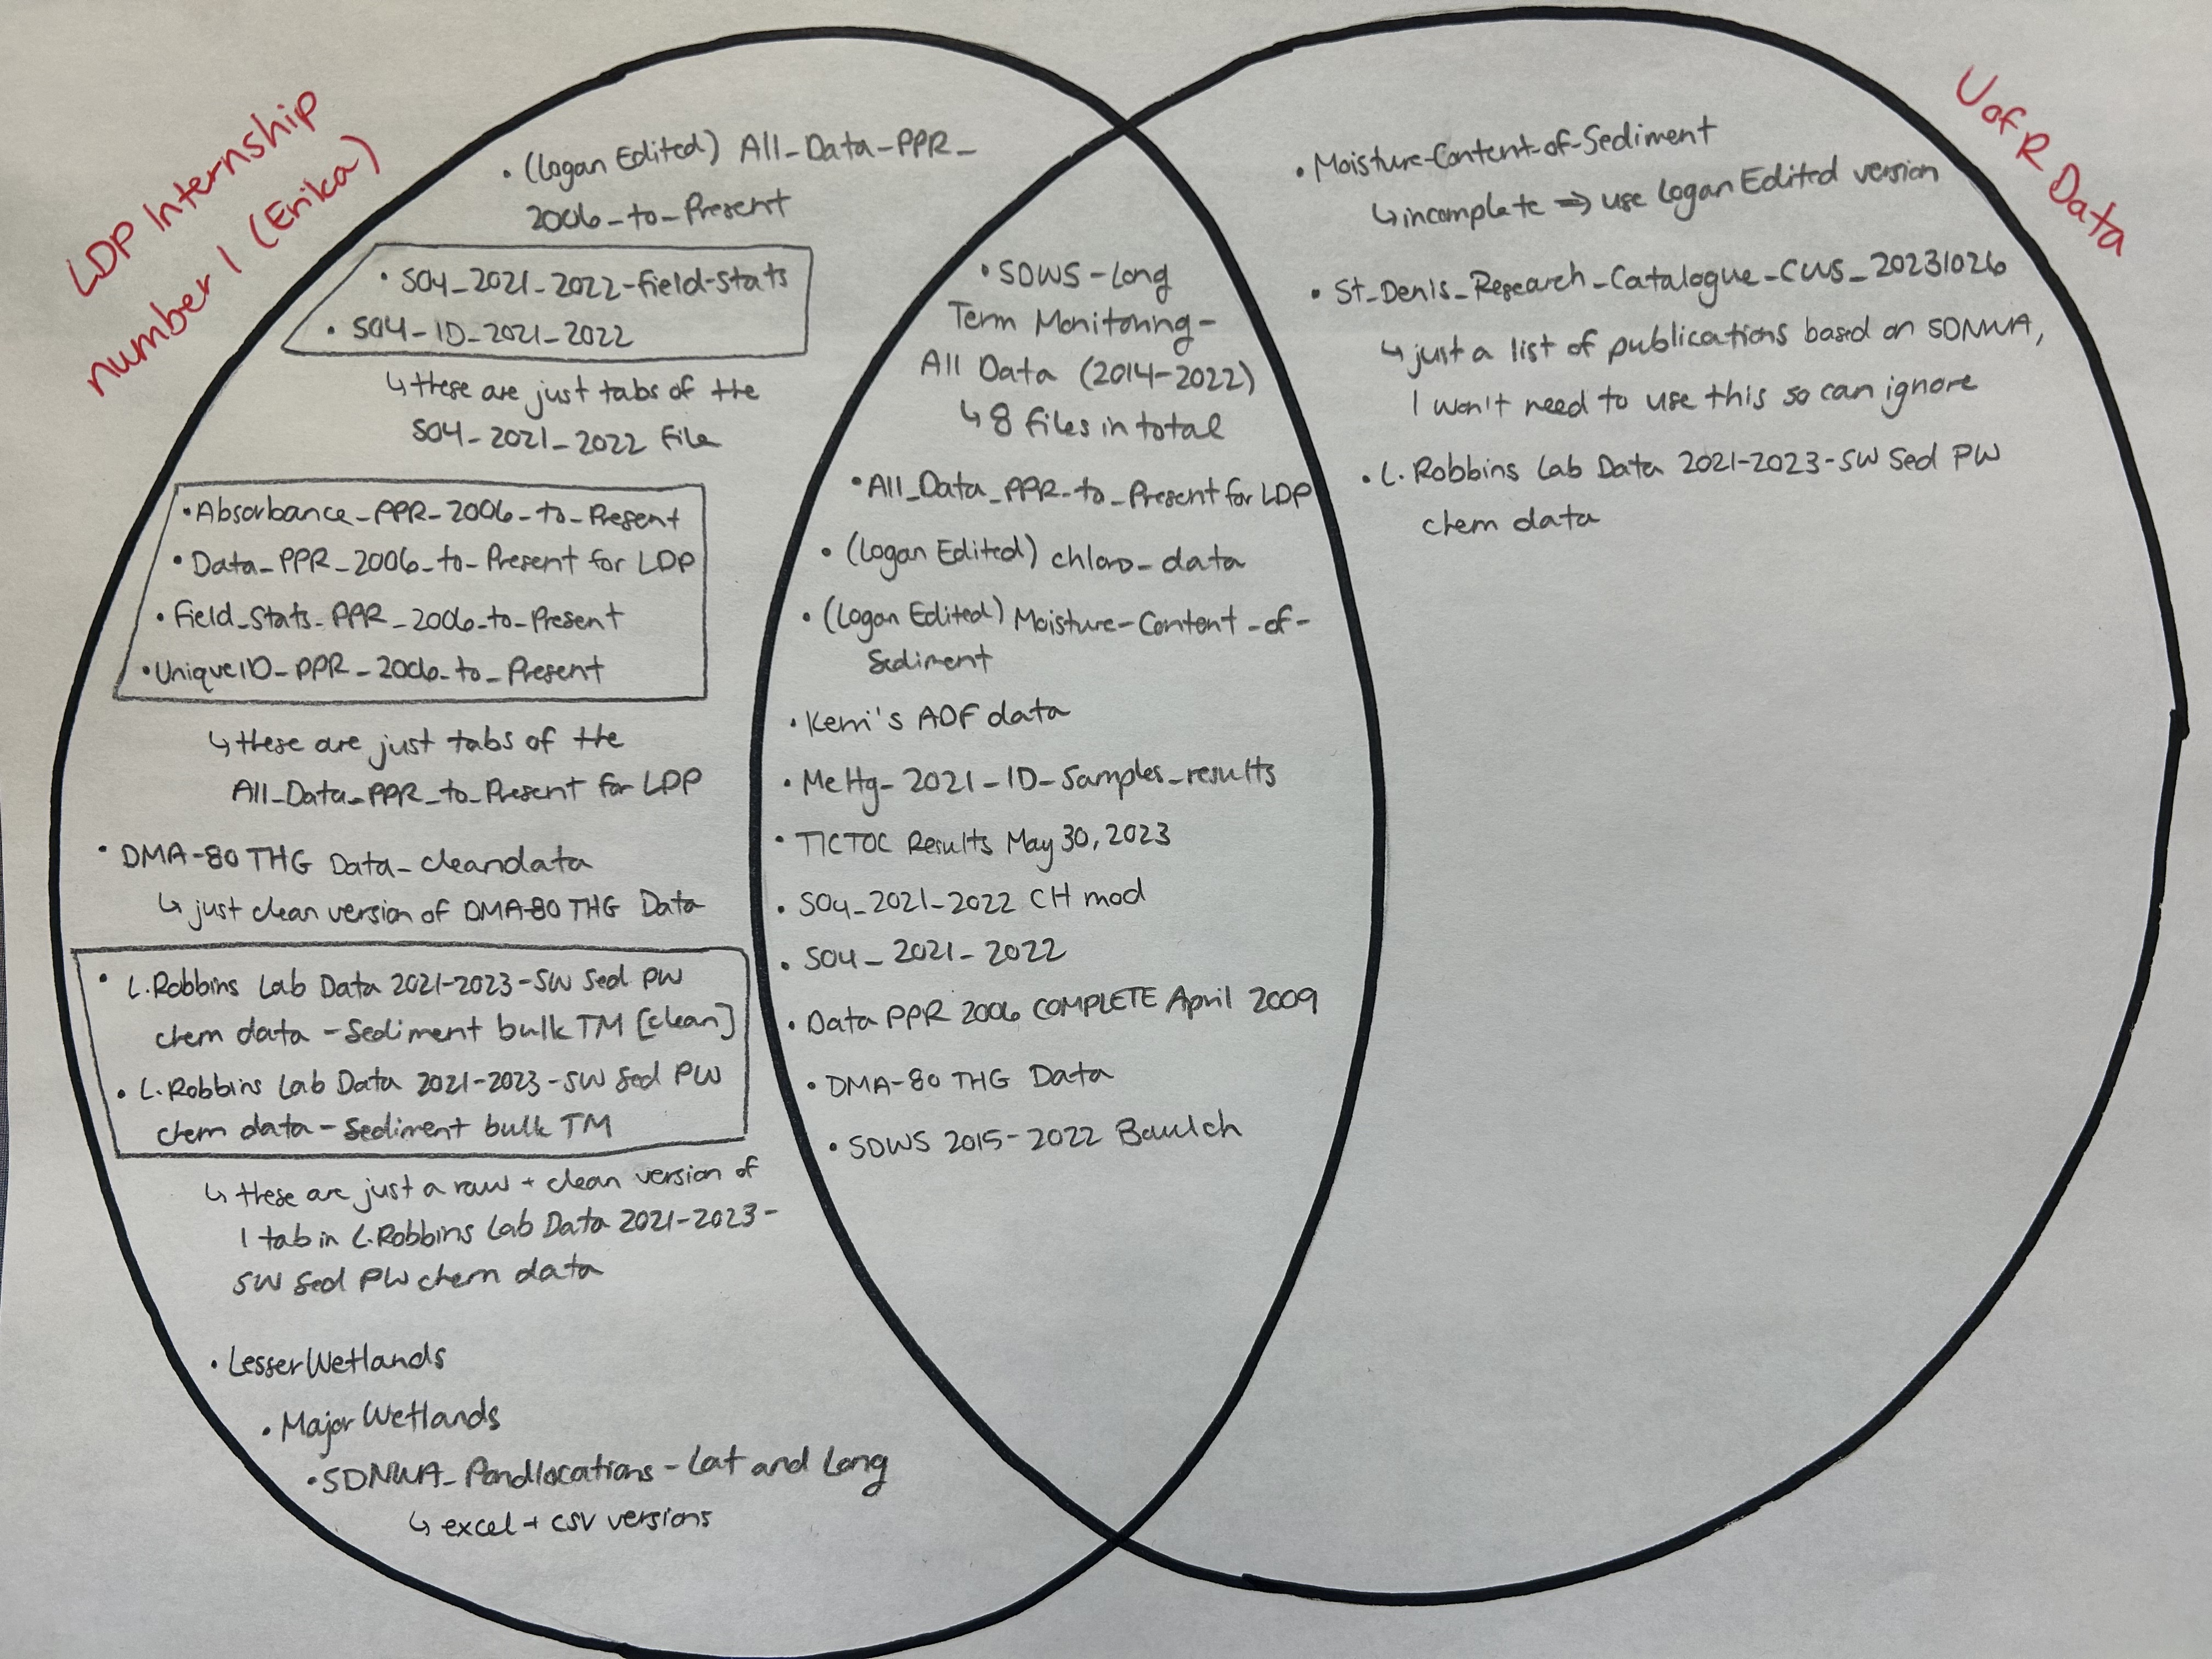 LDP Internship
number 1 (Erika)
• (Logan Edited) All_Data_PPR_
2006_to_Present
• SO4_2021_2022-field-stats
• SO4_ID_2021_2022
↳ these are just tabs of the
SO4_2021_2022 file
• Absorbance_PPR_2006_to_Present
• Data_PPR_2006_to_Present for LDP
• Field_Stats_PPR_2006_to_Present
• UniqueID_PPR_2006_to_Present
↳ these are just tabs of the
All_Data_PPR_to_Present for LDP
• DMA-80 THG Data_cleandata
↳ just clean version of DMA-80 THG Data
• L.Robbins Lab Data 2021-2023-SW Sed PW
chem data - Sediment bulk TM [clean]
• L.Robbins Lab Data 2021-2023-SW Sed PW
chem data - Sediment bulk TM
↳ these are just a raw + clean version of
1 tab in L.Robbins Lab Data 2021-2023-
SW Sed PW chem data
• LesserWetlands
• MajorWetlands
• SDNWA_Pondlocations - Lat and Long
↳ excel + csv versions
• SDWS - Long
Term Monitoring -
All Data (2014-2022)
↳ 8 files in total
• All_Data_PPR_to_Present for LDP
• (Logan Edited) chloro_data
• (Logan Edited) Moisture-Content-of-
Sediment
• Kerri's ADF data
• MeHg_2021_ID_Samples_results
• TICTOC Results May 30, 2023
• SO4_2021-2022 CH mod
• SO4_2021-2022
• Data PPR 2006 COMPLETE April 2009
• DMA-80 THG Data
• SDWS 2015-2022 Baulch
U of R Data
• Moisture-Content-of-Sediment
↳ incomplete ⇒ use Logan Edited version
• St_Denis_Research_Catalogue_CWS_20231026
↳ just a list of publications based on SDNWA,
I won't need to use this so can ignore
• L.Robbins Lab Data 2021-2023-SW Sed PW
chem data